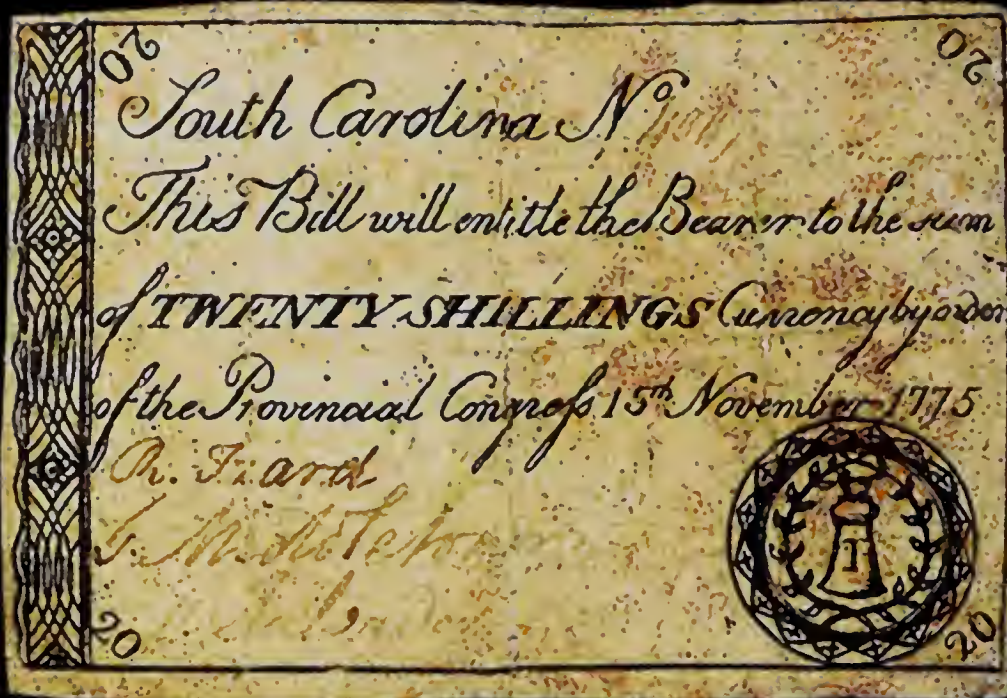 20 20
South Carolina No
This Bill will entitle the Bearer to the sum
of TWENTY SHILLINGS Currency by order
of the Provincial Congreſs 15th November 1775
T
20 20